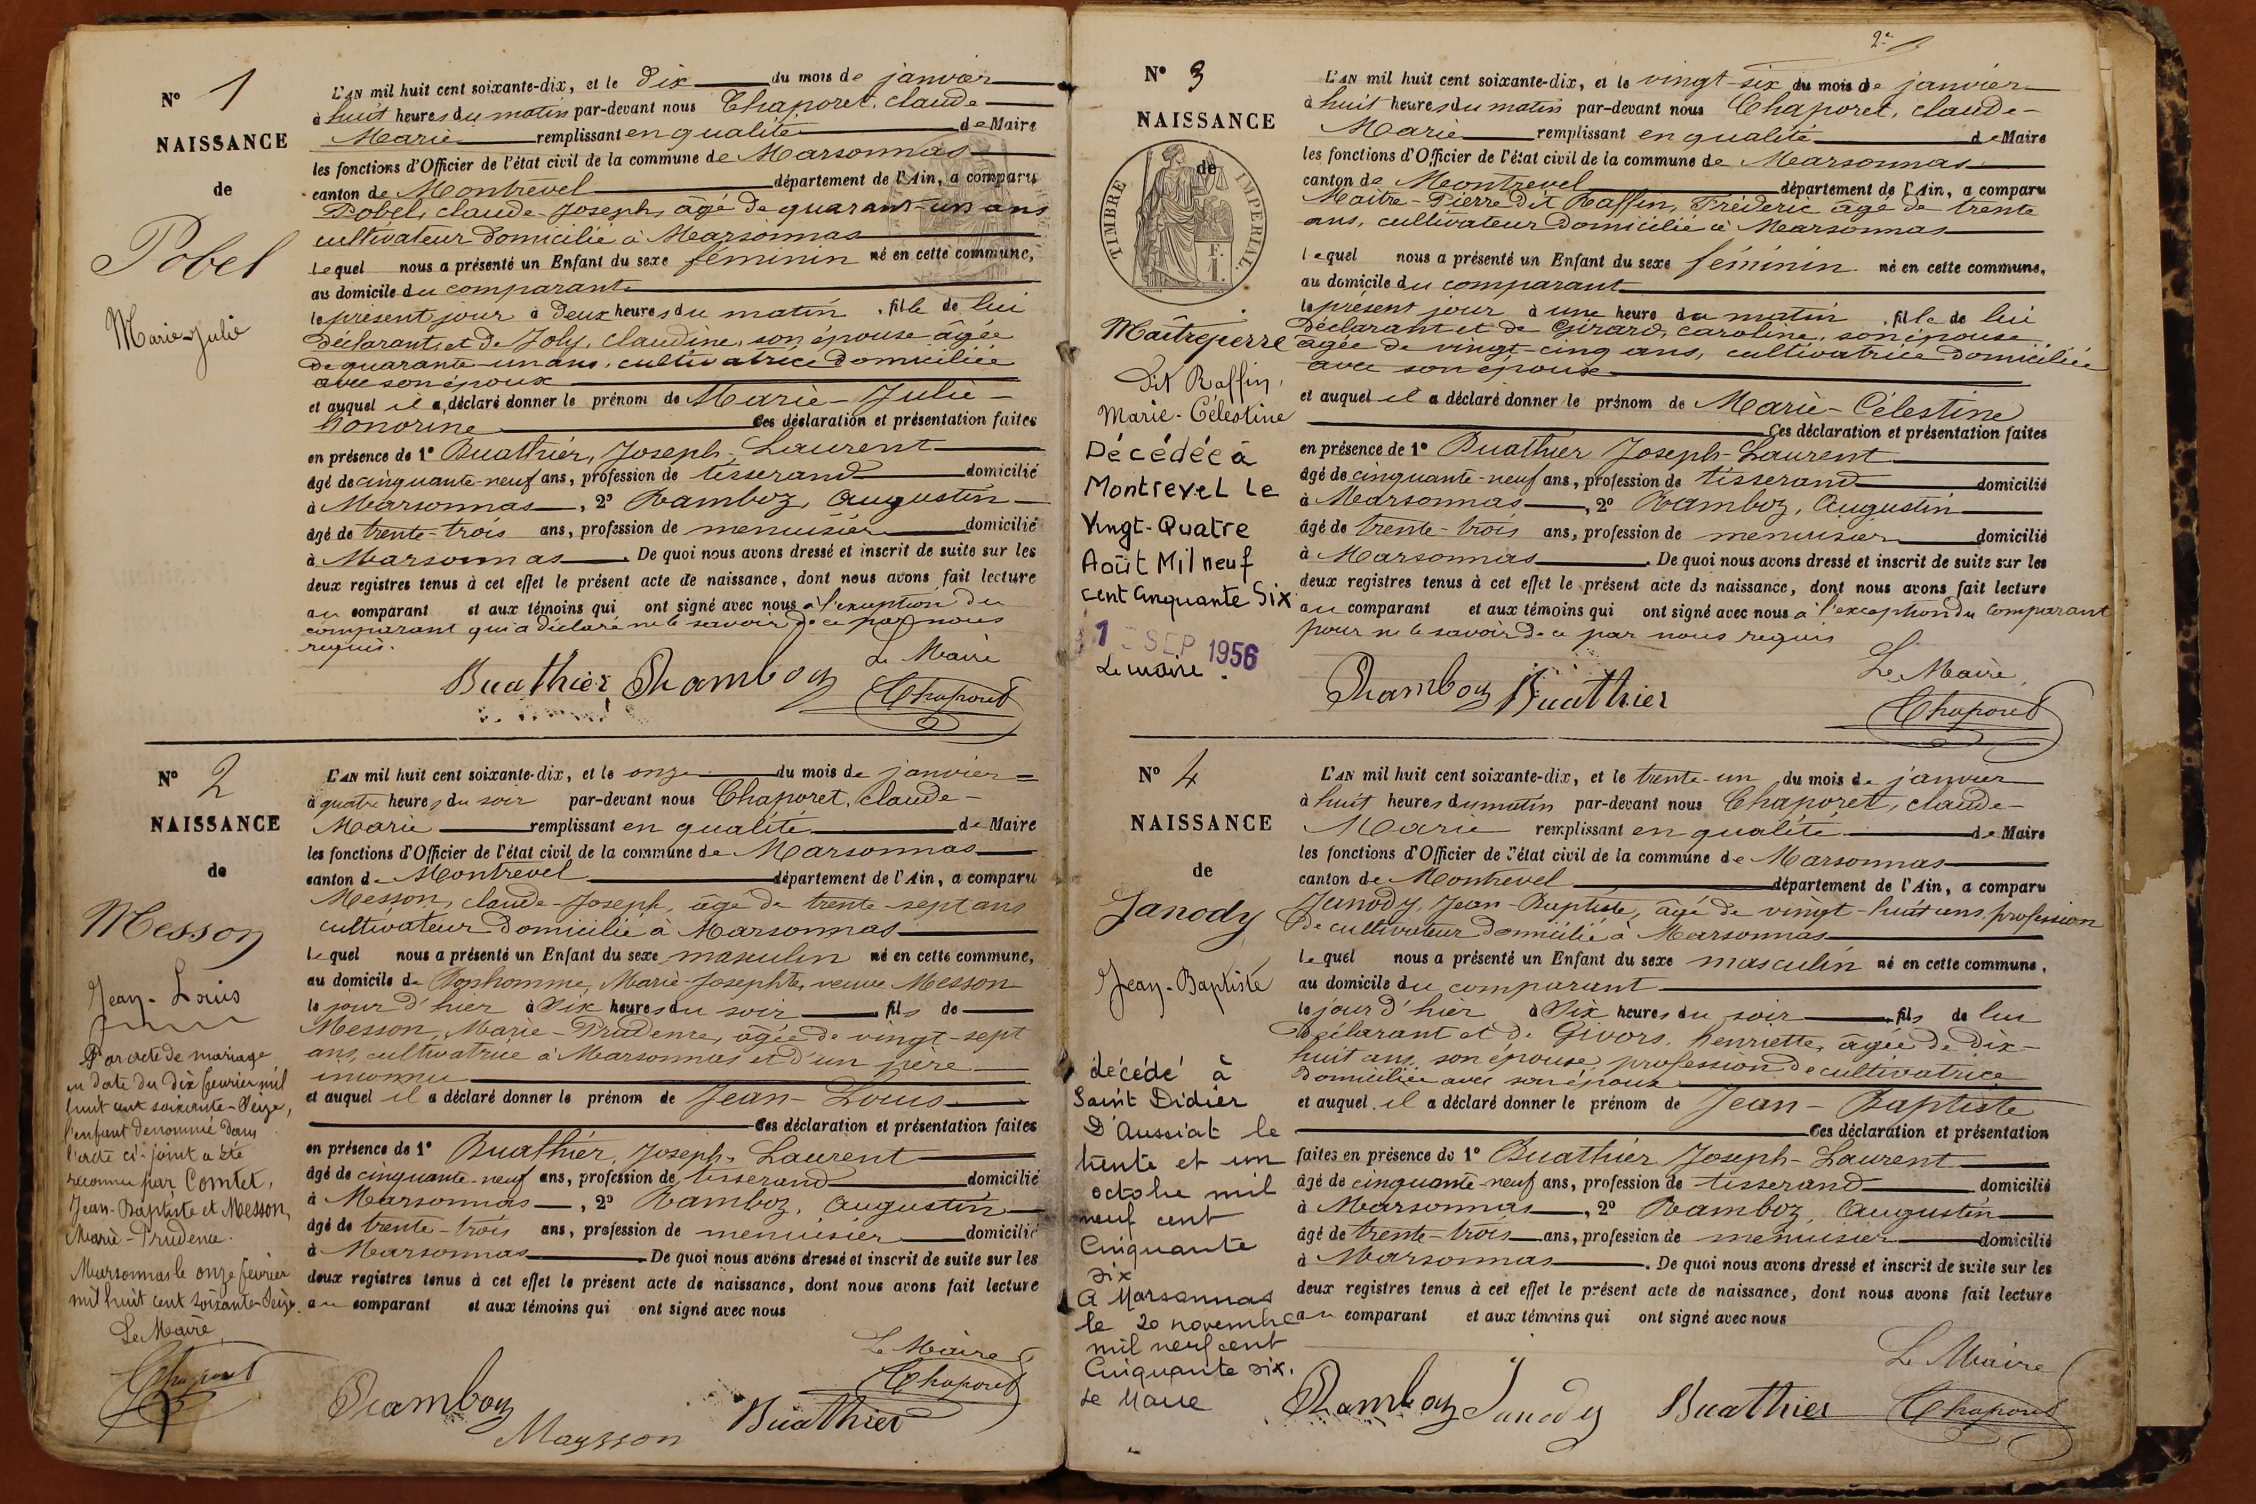 N° 1
NAISSANCE
de
Pobel
Marie-Julie
L'AN mil huit cent soixante-dix, et le dix du mois de janvier
à huit heures du matin par-devant nous Chaporet, claude-
Marie remplissant en qualité de Maire
les fonctions d'Officier de l'état civil de la commune de Marsonnas
canton de Montrevel département de l'Ain, a comparu
Pobel, claude-Joseph, âgé de quarant-un ans
cultivateur domicilié à Marsonnas
lequel nous a présenté un Enfant du sexe féminin né en cette commune,
au domicile du comparant
le présent jour à deux heures du matin, fille de lui
déclarant, et de Joly, claudine, son épouse âgée
de quarante-un ans, cultivatrice domiciliée
avec son époux
et auquel il a déclaré donner le prénom de Marie-Julie-
honorine Ces déclaration et présentation faites
en présence de 1° Buathier, Joseph-Laurent
âgé de cinquante-neuf ans, profession de tisserand domicilié
à Marsonnas, 2° Ramboz, Augustin
âgé de trente-trois ans, profession de menuisier domicilié
à Marsonnas. De quoi nous avons dressé et inscrit de suite sur les
deux registres tenus à cet effet le présent acte de naissance, dont nous avons fait lecture
au comparant et aux témoins qui ont signé avec nous à l'exception du
comparant qui a déclaré ne le savoir de ce par nous
requis.
Le Maire
Buathier Ramboz Chaporet
N° 2
NAISSANCE
de
Messon
Jean-Louis
Par acte de mariage
en date du dix février mil
huit cent soixante-seize,
l'enfant dénommé dans
l'acte ci-joint a été
reconnu par Comtet,
Jean-Baptiste et Messon,
Marie-Prudence.
Marsonnas le onze février
mil huit cent soixante-seize.
Le Maire,
Chaporet
L'AN mil huit cent soixante-dix, et le onze du mois de janvier
à quatre heures du soir par-devant nous Chaporet, claude-
Marie remplissant en qualité de Maire
les fonctions d'Officier de l'état civil de la commune de Marsonnas
canton de Montrevel département de l'Ain, a comparu
Messon, claude-Joseph, âgé de trente-sept ans
cultivateur domicilié à Marsonnas
lequel nous a présenté un Enfant du sexe masculin né en cette commune,
au domicile de Bonhomme, Marie-Josephte, veuve Messon
le jour d'hier à Six heures du soir fils de
Messon, Marie-Prudence, âgée de vingt-sept
ans, cultivatrice à Marsonnas et d'un père
inconnu
et auquel il a déclaré donner le prénom de Jean-Louis
Ces déclaration et présentation faites
en présence de 1° Buathier, Joseph-Laurent
âgé de cinquante-neuf ans, profession de tisserand domicilié
à Marsonnas, 2° Ramboz, Augustin
âgé de trente-trois ans, profession de menuisier domicilié
à Marsonnas De quoi nous avons dressé et inscrit de suite sur les
deux registres tenus à cet effet le présent acte de naissance, dont nous avons fait lecture
au comparant et aux témoins qui ont signé avec nous
Le Maire
Chaporet
Ramboz Maysson Buathier
2e
N° 3
NAISSANCE
de
TIMBRE IMPERIAL
Maîtrepierre
dit Raffin,
Marie-Célestine
Décédée à
Montrevel le
Vingt-Quatre
Août Mil neuf
cent cinquante Six
1 SEP 1956
Le maire.
L'AN mil huit cent soixante-dix, et le vingt-six du mois de janvier
à huit heures du matin par-devant nous Chaporet, claude-
Marie remplissant en qualité de Maire
les fonctions d'Officier de l'état civil de la commune de Marsonnas
canton de Montrevel département de l'Ain, a comparu
Maitre-Pierre dit Raffin, Fréderic âgé de trente
ans, cultivateur domicilié à Marsonnas
lequel nous a présenté un Enfant du sexe féminin né en cette commune,
au domicile du comparant
le présent jour à une heure du matin, fille de lui
déclarant et de Girard, caroline, son épouse
âgée de vingt-cinq ans, cultivatrice domiciliée
avec son époux
et auquel il a déclaré donner le prénom de Marie-Célestine
Ces déclaration et présentation faites
en présence de 1° Buathier Joseph-Laurent
âgé de cinquante-neuf ans, profession de tisserand domicilié
à Marsonnas, 2° Ramboz, Augustin
âgé de trente-trois ans, profession de menuisier domicilié
à Marsonnas. De quoi nous avons dressé et inscrit de suite sur les
deux registres tenus à cet effet le présent acte de naissance, dont nous avons fait lecture
au comparant et aux témoins qui ont signé avec nous à l'exception du comparant
pour ne le savoir de ce par nous requis
Le Maire,
Ramboz Buathier Chaporet
N° 4
NAISSANCE
de
Janody
Jean-Baptiste
décédé à
Saint Didier
D'Aussiat le
trente et un
octobre mil
neuf cent
Cinquante
six
A Marsonnas
le 20 novembre
mil neuf cent
Cinquante six.
Le Maire
L'AN mil huit cent soixante-dix, et le trente-un du mois de janvier
à huit heures du matin par-devant nous Chaporet, claude-
Marie remplissant en qualité de Maire
les fonctions d'Officier de l'état civil de la commune de Marsonnas
canton de Montrevel département de l'Ain, a comparu
Janody, Jean-Baptiste, âgé de vingt-huit ans, profession
de cultivateur domicilié à Marsonnas
lequel nous a présenté un Enfant du sexe masculin né en cette commune,
au domicile du comparant
le jour d'hier à Six heures du soir fils de lui
déclarant et de Givors, henriette, âgée de dix-
huit ans, son épouse, profession de cultivatrice
domiciliée avec son époux
et auquel il a déclaré donner le prénom de Jean-Baptiste
Ces déclaration et présentation
faites en présence de 1° Buathier Joseph-Laurent
âgé de cinquante-neuf ans, profession de tisserand domicilié
à Marsonnas, 2° Ramboz, Augustin
âgé de trente-trois ans, profession de menuisier domicilié
à Marsonnas. De quoi nous avons dressé et inscrit de suite sur les
deux registres tenus à cet effet le présent acte de naissance, dont nous avons fait lecture
au comparant et aux témoins qui ont signé avec nous
Le Maire
Ramboz Janody Buathier Chaporet